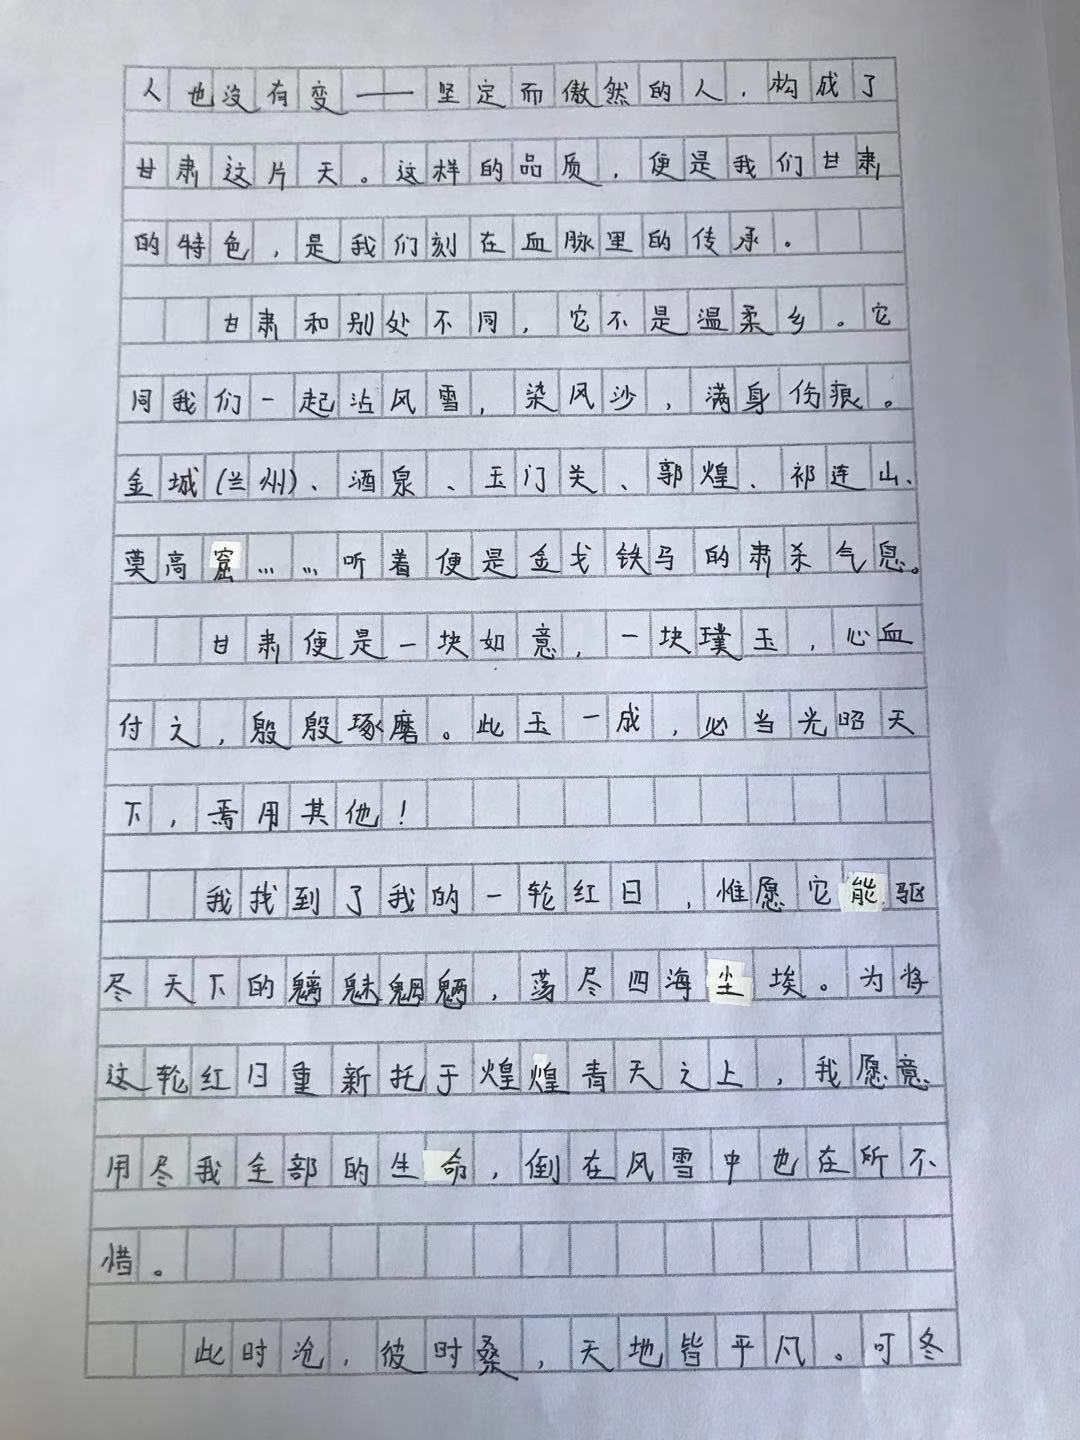 人也没有变——坚定而傲然的人，构成了
甘肃这片天。这样的品质，便是我们甘肃
的特色，是我们刻在血脉里的传承。
甘肃和别处不同，它不是温柔乡。它
同我们一起沾风雪，染风沙，满身伤痕。
金城(兰州)、酒泉、玉门关、郭煌、祁连山、
莫高窟……听着便是金戈铁马的肃杀气息。
甘肃便是一块如意，一块璞玉，心血
付之，殷殷琢磨。此玉一成，必当光昭天
下，焉用其他！
我找到了我的一轮红日，惟愿它能驱
尽天下的魑魅魍魉，荡尽四海尘埃。为将
这轮红日重新托于煌煌青天之上，我愿意
用尽我全部的生命，倒在风雪中也在所不
惜。
此时沧，彼时桑，天地皆平凡。可冬